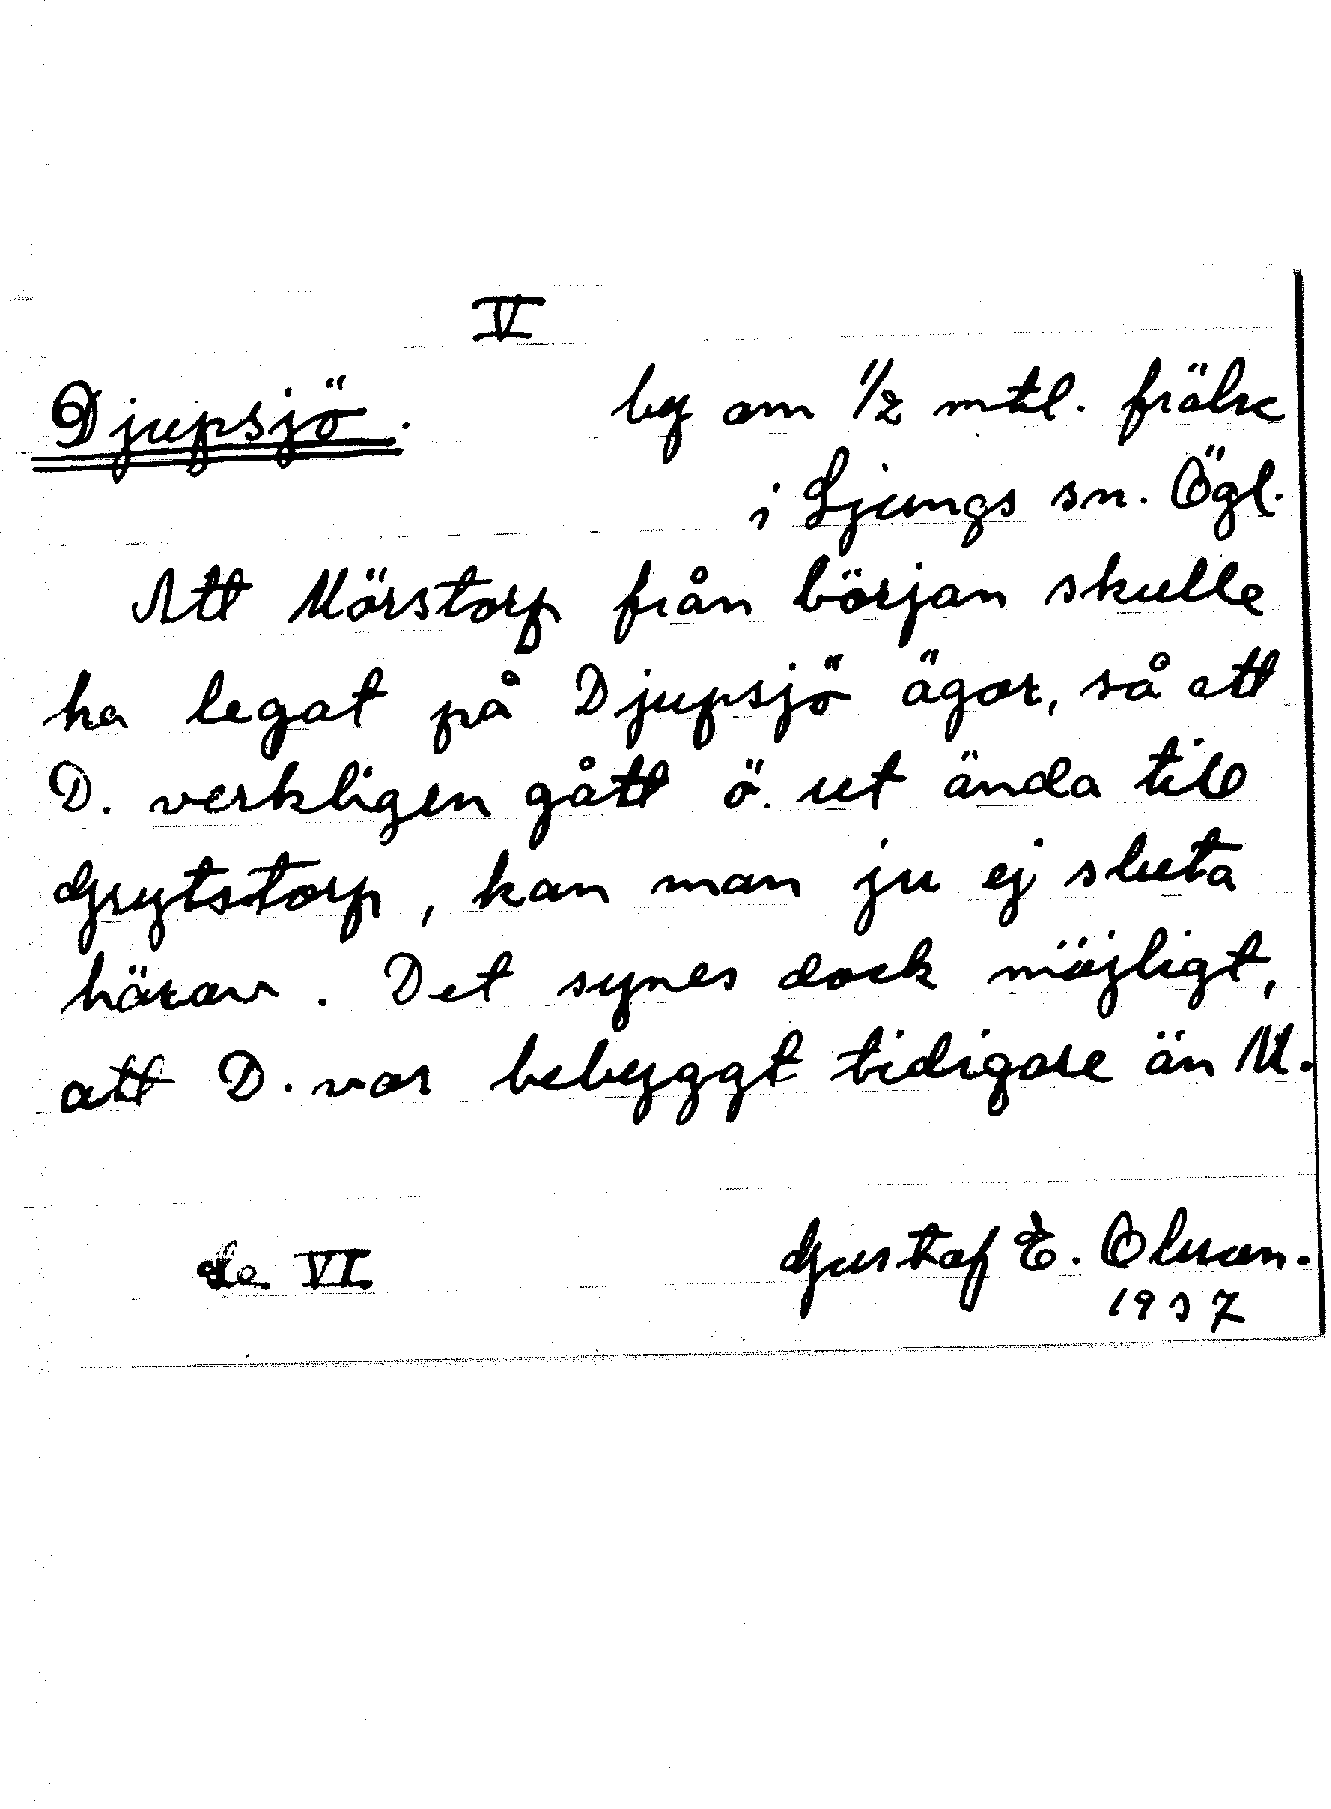 V
Djupsjö. by om 1/2 mtl. frälse
i Ljungs sn. Ögl.
Att Mörstorp från början skulle
ha legat på Djupsjö ägor, så att
D. verkligen gått ö. ut ända till
Grytstorp, kan man ju ej sluta
härav. Det synes dock möjligt,
att D. var bebyggt tidigare än M.
Se VI Gustaf E. Olsson.
1937